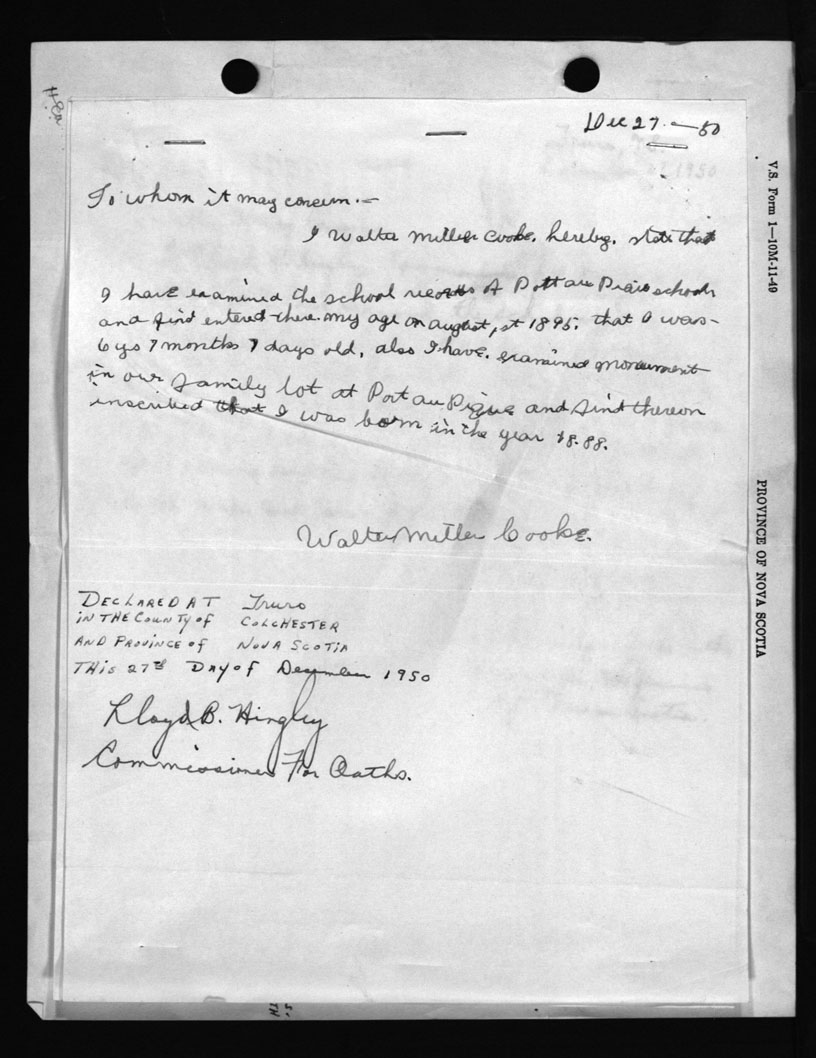 Dec 27 - 50
To whom it may concern. -
I Walter Miller Cooke. hereby. state that
I have examined the school records of Port au Pique schools
and find entered there my age on august, st 1895, that I was -
6 ys 7 months 7 days old, also I have. examined monument
in our family lot at Port au Pique and find thereon
inscribed that I was born in the year 18.88.
Walter Miller Cooke.
DECLARED AT Truro
IN THE COUNTY of COLCHESTER
AND PROVINCE of NOVA SCOTIA
THIS 27th DAY of December 1950
Lloyd B. Hingley
Commissioner For Oaths.
V.S. Form 1—10M-11-49
PROVINCE OF NOVA SCOTIA